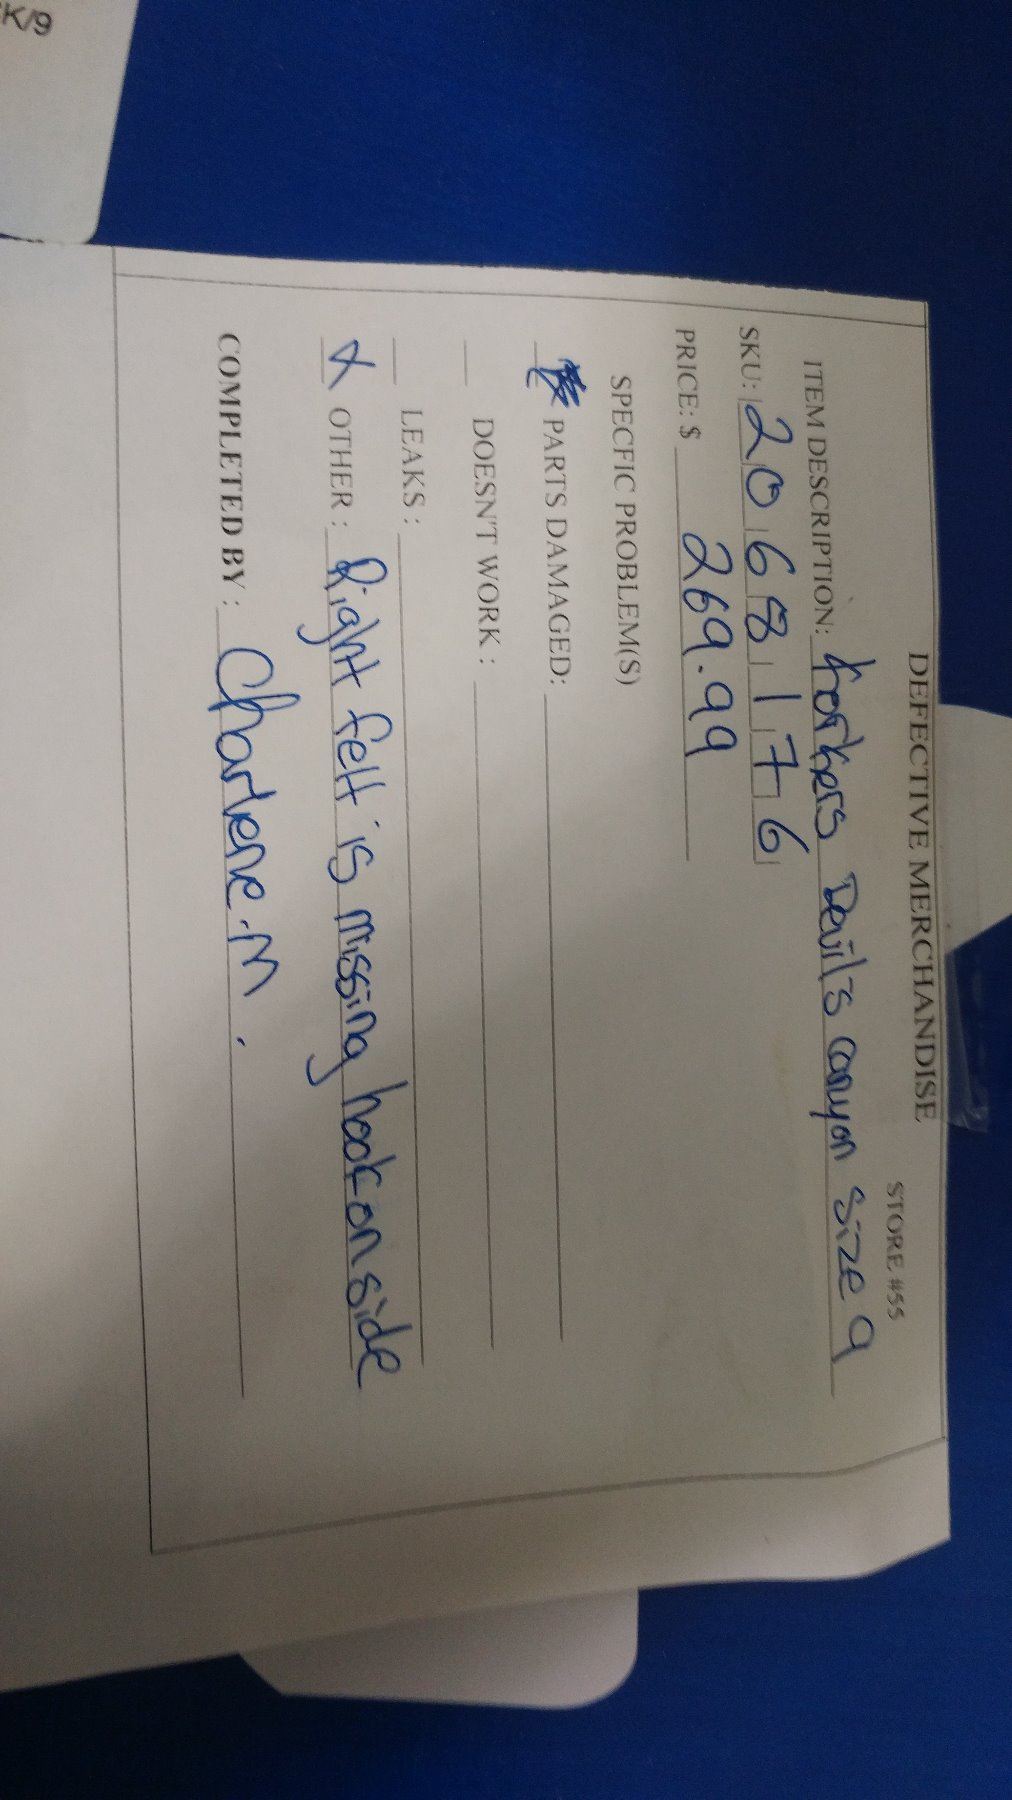 K/9
DEFECTIVE MERCHANDISE
STORE #55
ITEM DESCRIPTION: Korkers Devil's canyon size 9
SKU: 2068176
PRICE: $ 269.99
SPECFIC PROBLEM(S)
PARTS DAMAGED:
DOESN'T WORK :
LEAKS :
X OTHER : Right felt is missing hook on side
COMPLETED BY : Charlene.M.